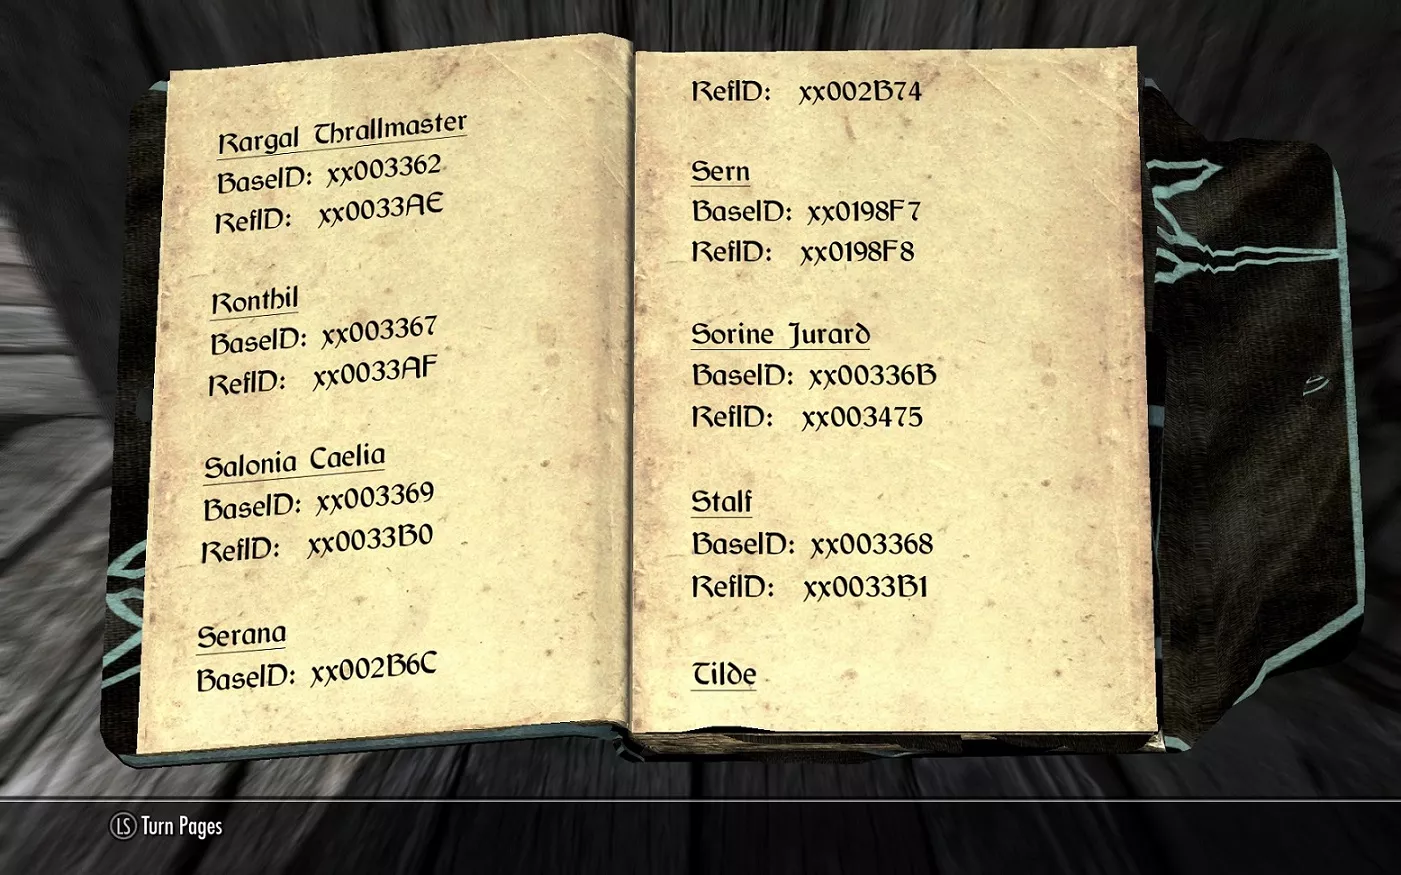 Rargal Thrallmaster
BaseID: xx003362
RefID: xx0033AE
Ronthil
BaseID: xx003367
RefID: xx0033AF
Salonia Caelia
BaseID: xx003369
RefID: xx0033B0
Serana
BaseID: xx002B6C
RefID: xx002B74
Sern
BaseID: xx0198F7
RefID: xx0198F8
Sorine Jurard
BaseID: xx00336B
RefID: xx003475
Stalf
BaseID: xx003368
RefID: xx0033B1
Tilde
LS Turn Pages